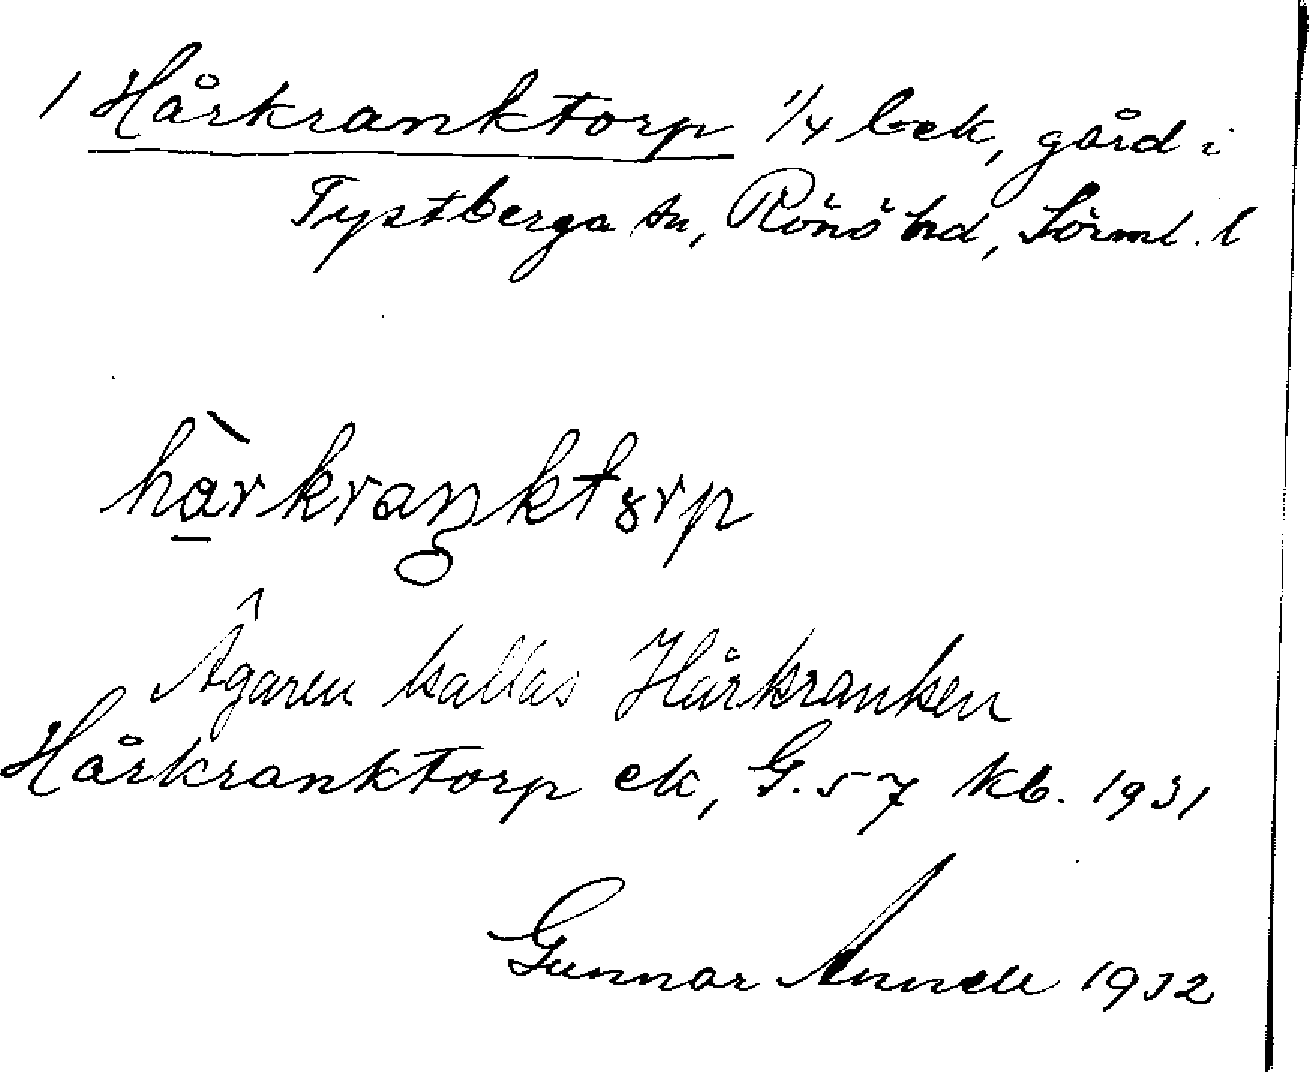 1 Hårkranktorp 1/4 bek, gård i
Tystberga sn, Rönö hd, Sörml. l
hàrkraŋktȣrp
Ägaren kallas Hårkranken
Hårkranktorp ek, G. 57 kb. 1931
Gunnar Annell 1932